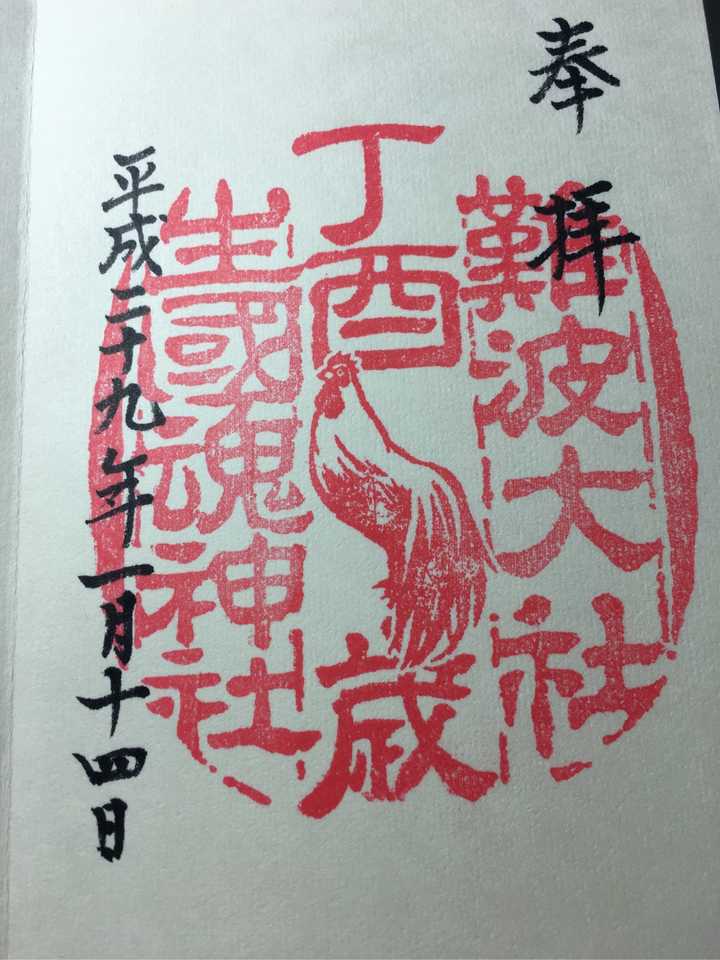 奉拝
難波大社
丁酉歳
生國魂神社
平成二十九年一月十四日